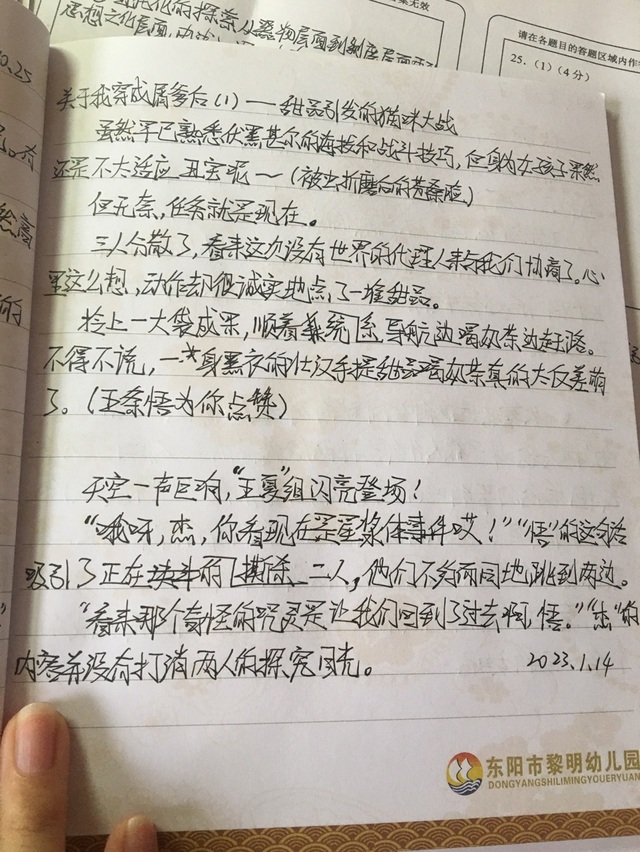 思想文化的探索从器物层面到制度层面再
效无效
请在各题目的答题区域内作
25.（1）（4分）
0.25
关于我穿成屑爹后（1）——甜品引发的猫咪大战
虽然早已熟悉伏黑甚尔的海拔和战斗技巧，但身为女孩子果然
还是不太适应 丑宝呢～（被虫折磨后的苍桑脸）
但无奈，任务就是现在。
三人分散了，看来这次没有世界的代理人来与我们协商了。心
里这么想，动作却很诚实地点了一堆甜品。
拎上一大袋成果，顺着系统导航边喝奶茶边赶路。
不得不说，一身黑衣的壮汉手提甜品喝奶茶真的太反差萌
了。（五条悟为你点赞）
天空一声巨响，“五夏”组闪亮登场！
“哦呀，杰，你看现在是星浆体事件哎！”“悟”的这句话
吸引了正在厮杀二人，他们不约而同地跳到两边。
“看来那个奇怪的咒灵是让我们回到了过去啊，悟。”“杰”的
内容并没有打消两人的探究目光。
2023.1.14
东阳市黎明幼儿园
DONGYANGSHILIMINGYOUERYUAN